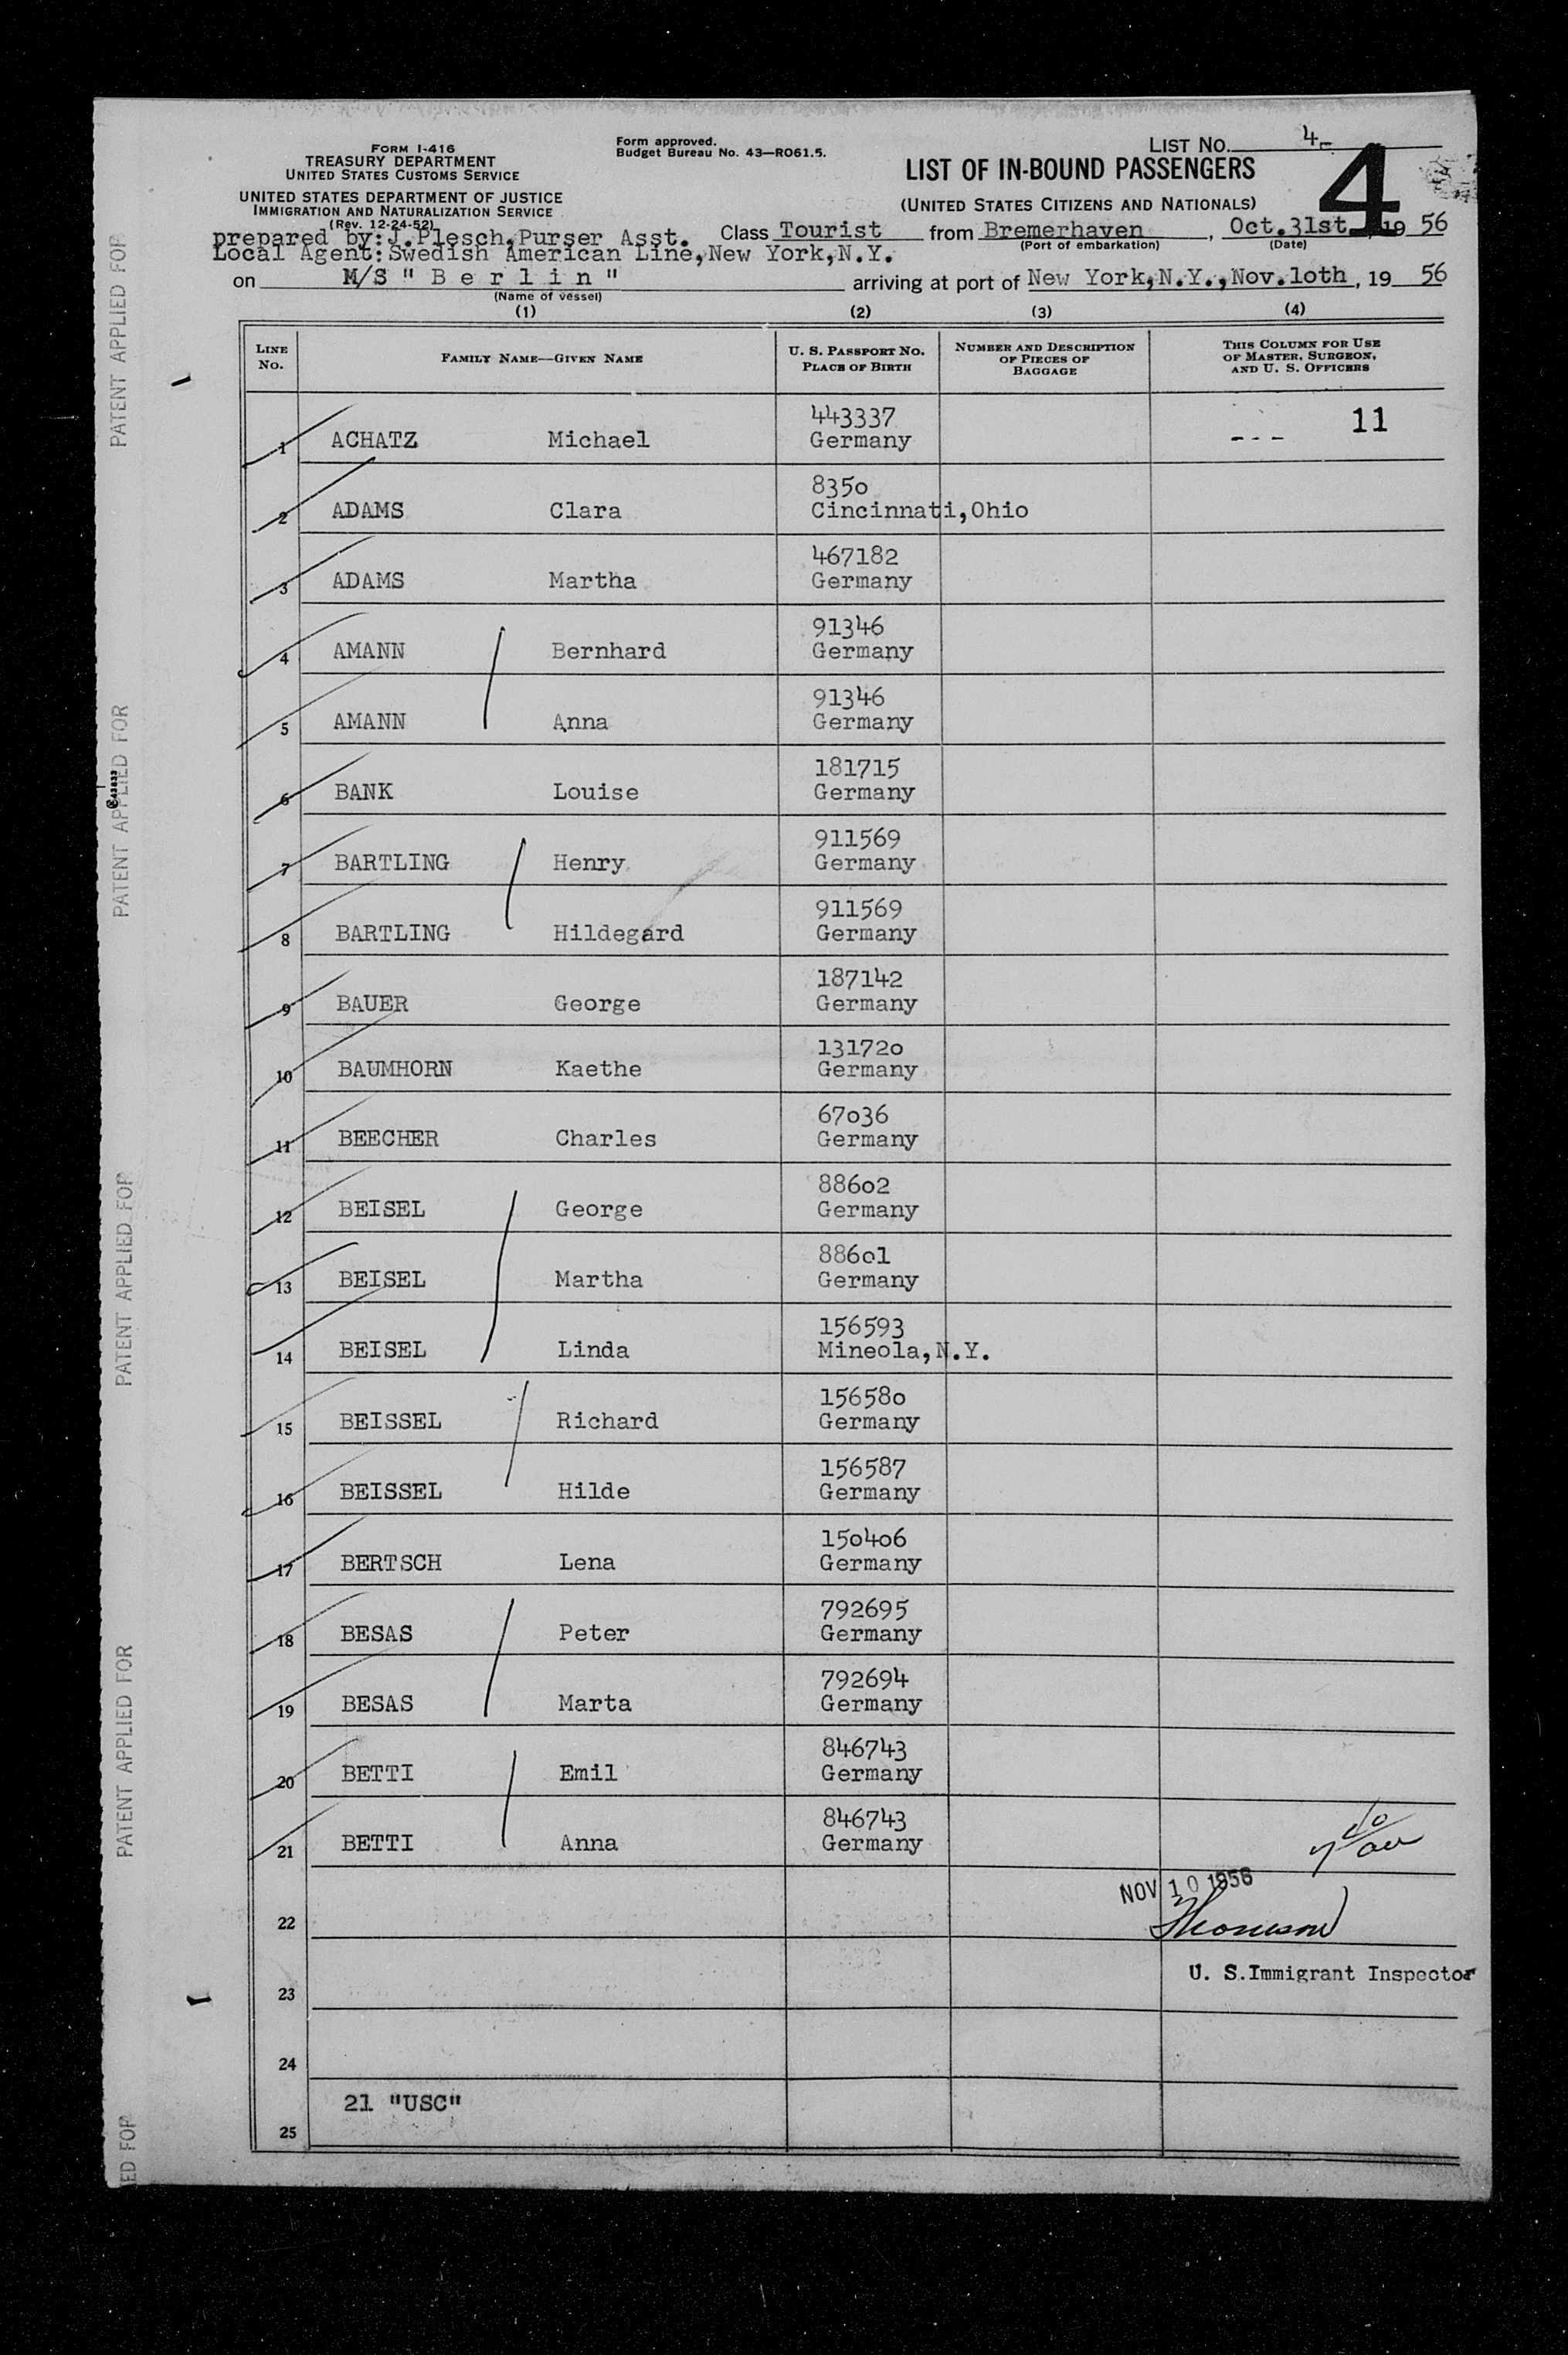 FORM I-416
TREASURY DEPARTMENT
UNITED STATES CUSTOMS SERVICE
UNITED STATES DEPARTMENT OF JUSTICE
IMMIGRATION AND NATURALIZATION SERVICE
(Rev. 12-24-52)
Form approved.
Budget Bureau No. 43—RO61.5.
LIST NO. 4-
4
LIST OF IN-BOUND PASSENGERS
(UNITED STATES CITIZENS AND NATIONALS)
prepared by:J.Plesch,Purser Asst. Class Tourist from Bremerhaven, Oct.31st, 19 56
(Port of embarkation) (Date)
Local Agent:Swedish American Line,New York,N.Y.
on M/S " B e r l i n " arriving at port of New York,N.Y.,Nov.1oth, 19 56
(Name of vessel)
(1) (2) (3) (4)
LINE No. FAMILY NAME—GIVEN NAME U. S. PASSPORT NO. PLACE OF BIRTH NUMBER AND DESCRIPTION OF PIECES OF BAGGAGE THIS COLUMN FOR USE OF MASTER, SURGEON, AND U. S. OFFICERS
443337 11
1 ACHATZ Michael Germany ---
835o
2 ADAMS Clara Cincinnati,Ohio
467182
3 ADAMS Martha Germany
91346
4 AMANN Bernhard Germany
91346
5 AMANN Anna Germany
181715
6 BANK Louise Germany
911569
7 BARTLING Henry Germany
911569
8 BARTLING Hildegard Germany
187142
9 BAUER George Germany
13172o
10 BAUMHORN Kaethe Germany
67o36
11 BEECHER Charles Germany
886o2
12 BEISEL George Germany
886o1
13 BEISEL Martha Germany
156593
14 BEISEL Linda Mineola,N.Y.
15658o
15 BEISSEL Richard Germany
156587
16 BEISSEL Hilde Germany
15o4o6
17 BERTSCH Lena Germany
792695
18 BESAS Peter Germany
792694
19 BESAS Marta Germany
846743
20 BETTI Emil Germany
846743
21 BETTI Anna Germany
NOV 10 1956
22
U. S.Immigrant Inspector
23
24
21 "USC"
25
PATENT APPLIED FOR
PATENT APPLIED FOR
PATENT APPLIED FOR
PATENT APPLIED FOR